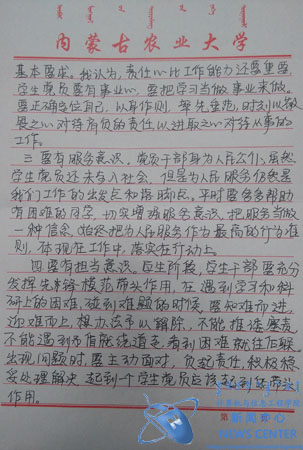 内蒙古农业大学
基本要求。我认为，责任心比工作能力还要重要，
学生党员要有事业心，要把学习当做事业来做。
要正确定位自己，以身作则，率先垂范，时刻以敬
畏之心对待肩负的责任，以进取之心对待从事的
工作。
三要有服务意识。党员干部身为人民公仆，虽然
学生党员还未与入社会，但是为人民服务仍然是
我们工作的出发点和落脚点。平时要多多帮助
有困难的同学，切实增强服务意识，把服务当做
一种信念，始终把为人民服务作为最高的行为准
则，体现在工作中，落实在行动上。
四要有担当意识。在生阶段，学生干部要充分
发挥先锋模范带头作用，在遇到学习和科
研上的困难，碰到难题的时候，要知难而进，
迎难而上，想办法予以解除，不能推诿塞责，
不能遇到矛盾就绕道走，看到困难就往后躲。
出现问题时，要主动面对，负起责任，积极稳
妥处理解决，起到一个学生党员应该起到的带头
作用。
计算机与信息工程学院
新闻中心
NEWS CENTER